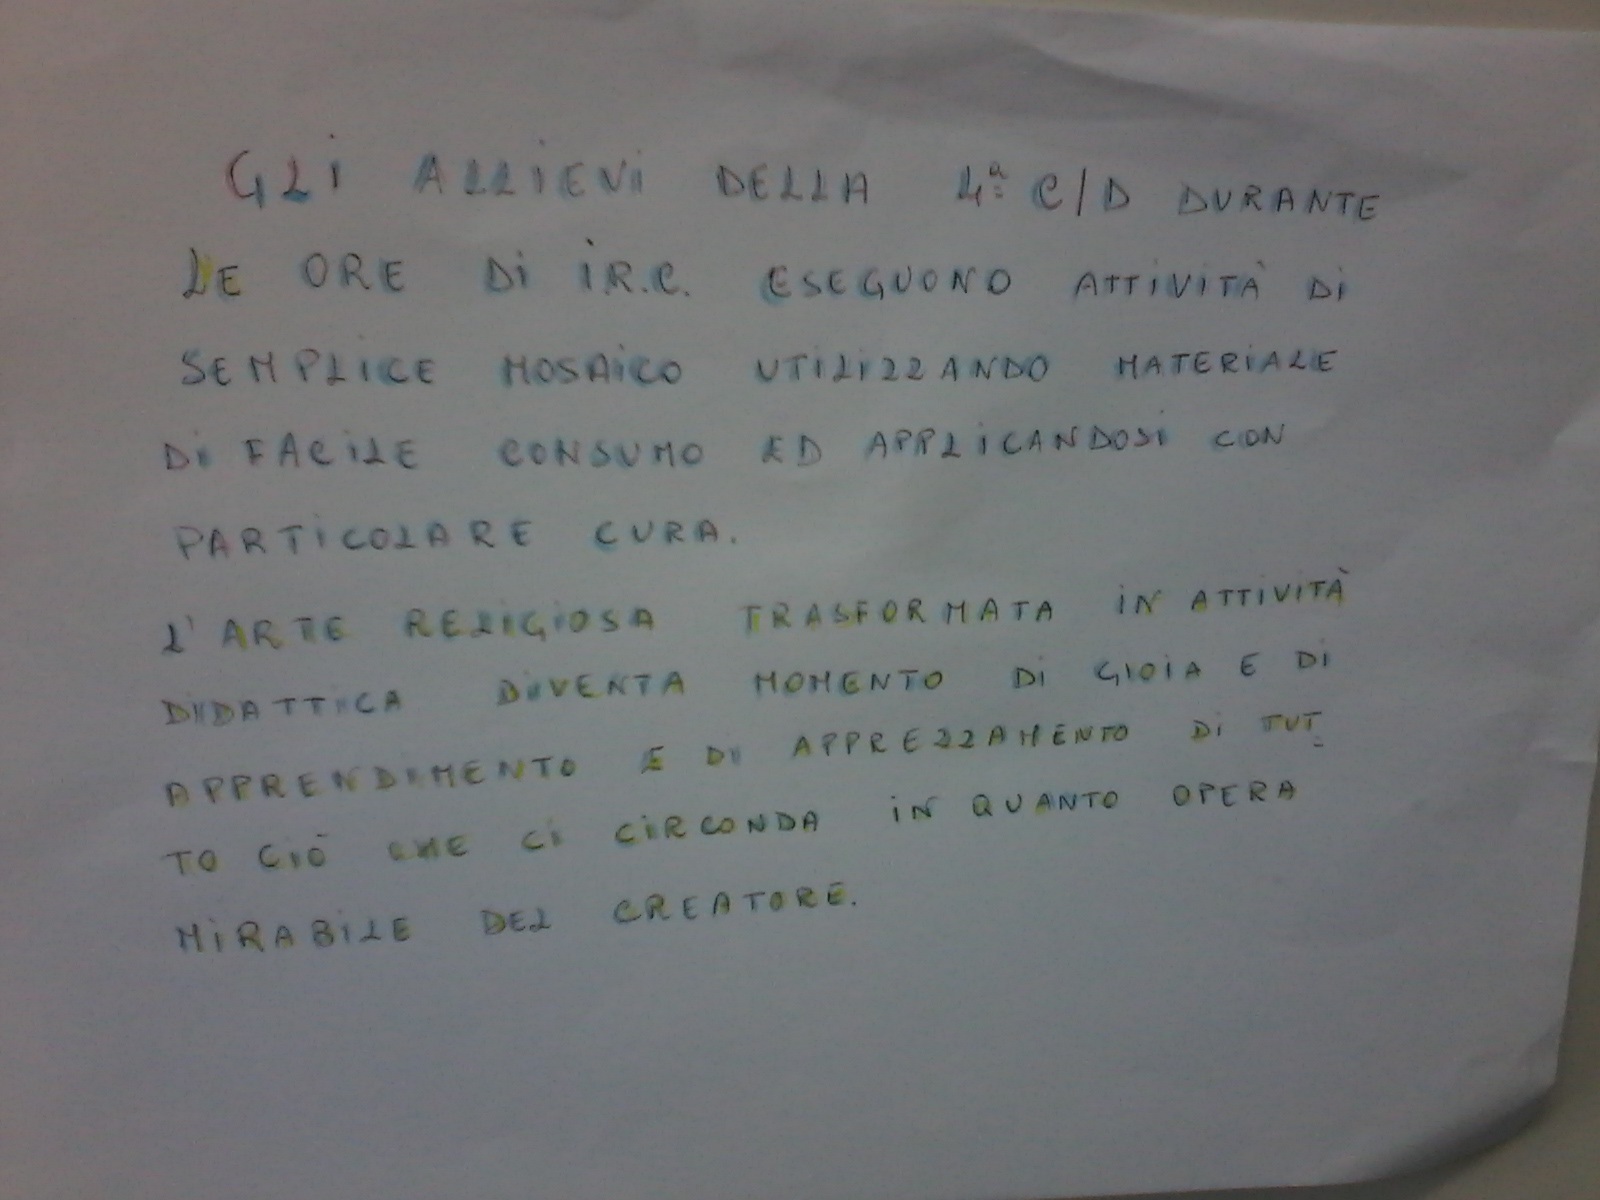 GLI ALLIEVI DELLA 4ª C/D DURANTE
LE ORE DI I.R.C. ESEGUONO ATTIVITÀ DI
SEMPLICE MOSAICO UTILIZZANDO MATERIALE
DI FACILE CONSUMO ED APPLICANDOSI CON
PARTICOLARE CURA.
L'ARTE RELIGIOSA TRASFORMATA IN ATTIVITÀ
DIDATTICA DIVENTA MOMENTO DI GIOIA E DI
APPRENDIMENTO E DI APPREZZAMENTO DI TUT
TO CIÒ CHE CI CIRCONDA IN QUANTO OPERA
MIRABILE DEL CREATORE.